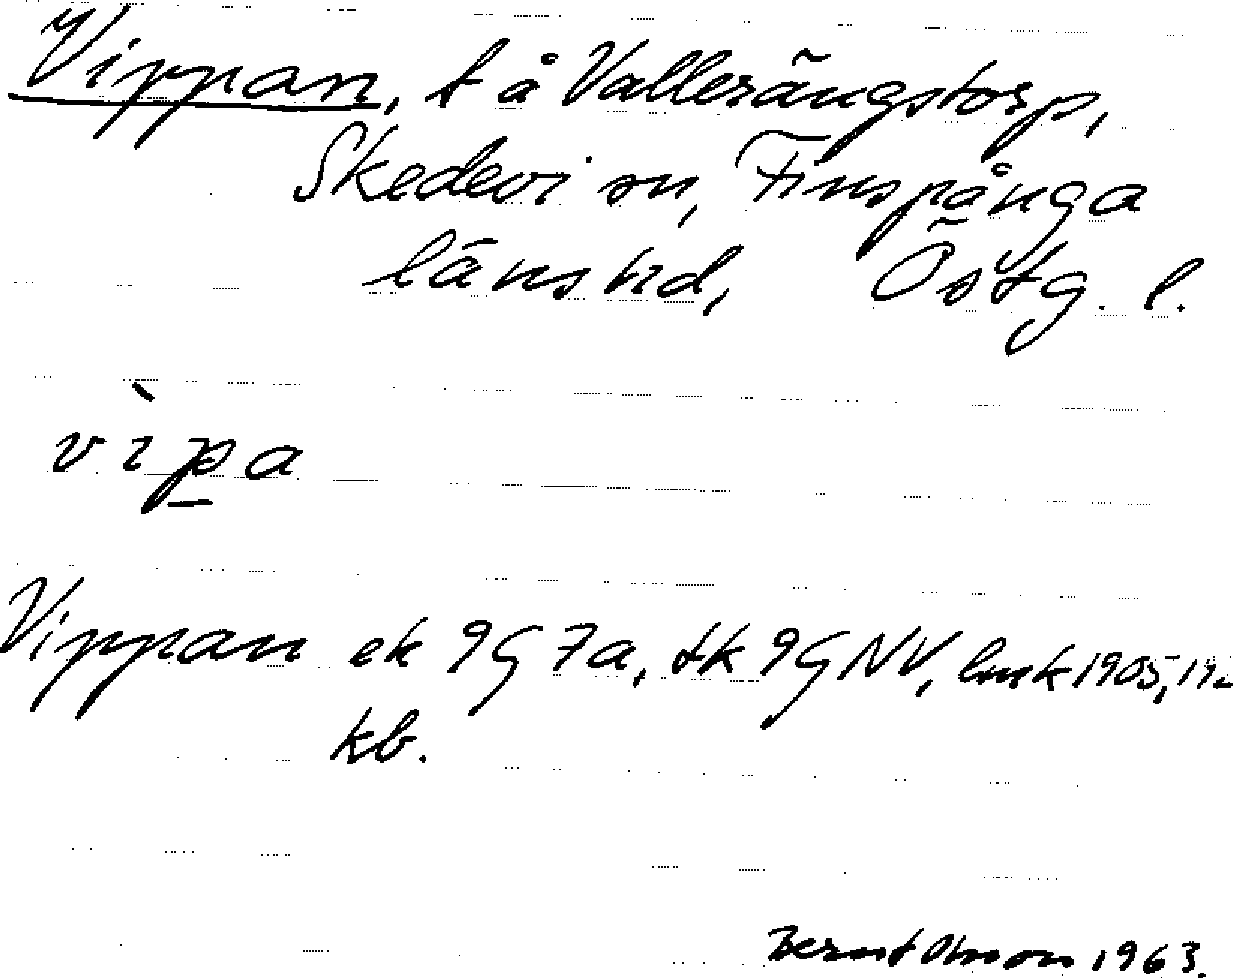 Vippan, t å Vallerängstorp,
Skedevi sn, Finspånga
läns hd, Östg. l.
vìpa
Vippan ek 9G7a, tk 9GNV, lmk 1905, 192
kb.
Bernt Olsson 1963.